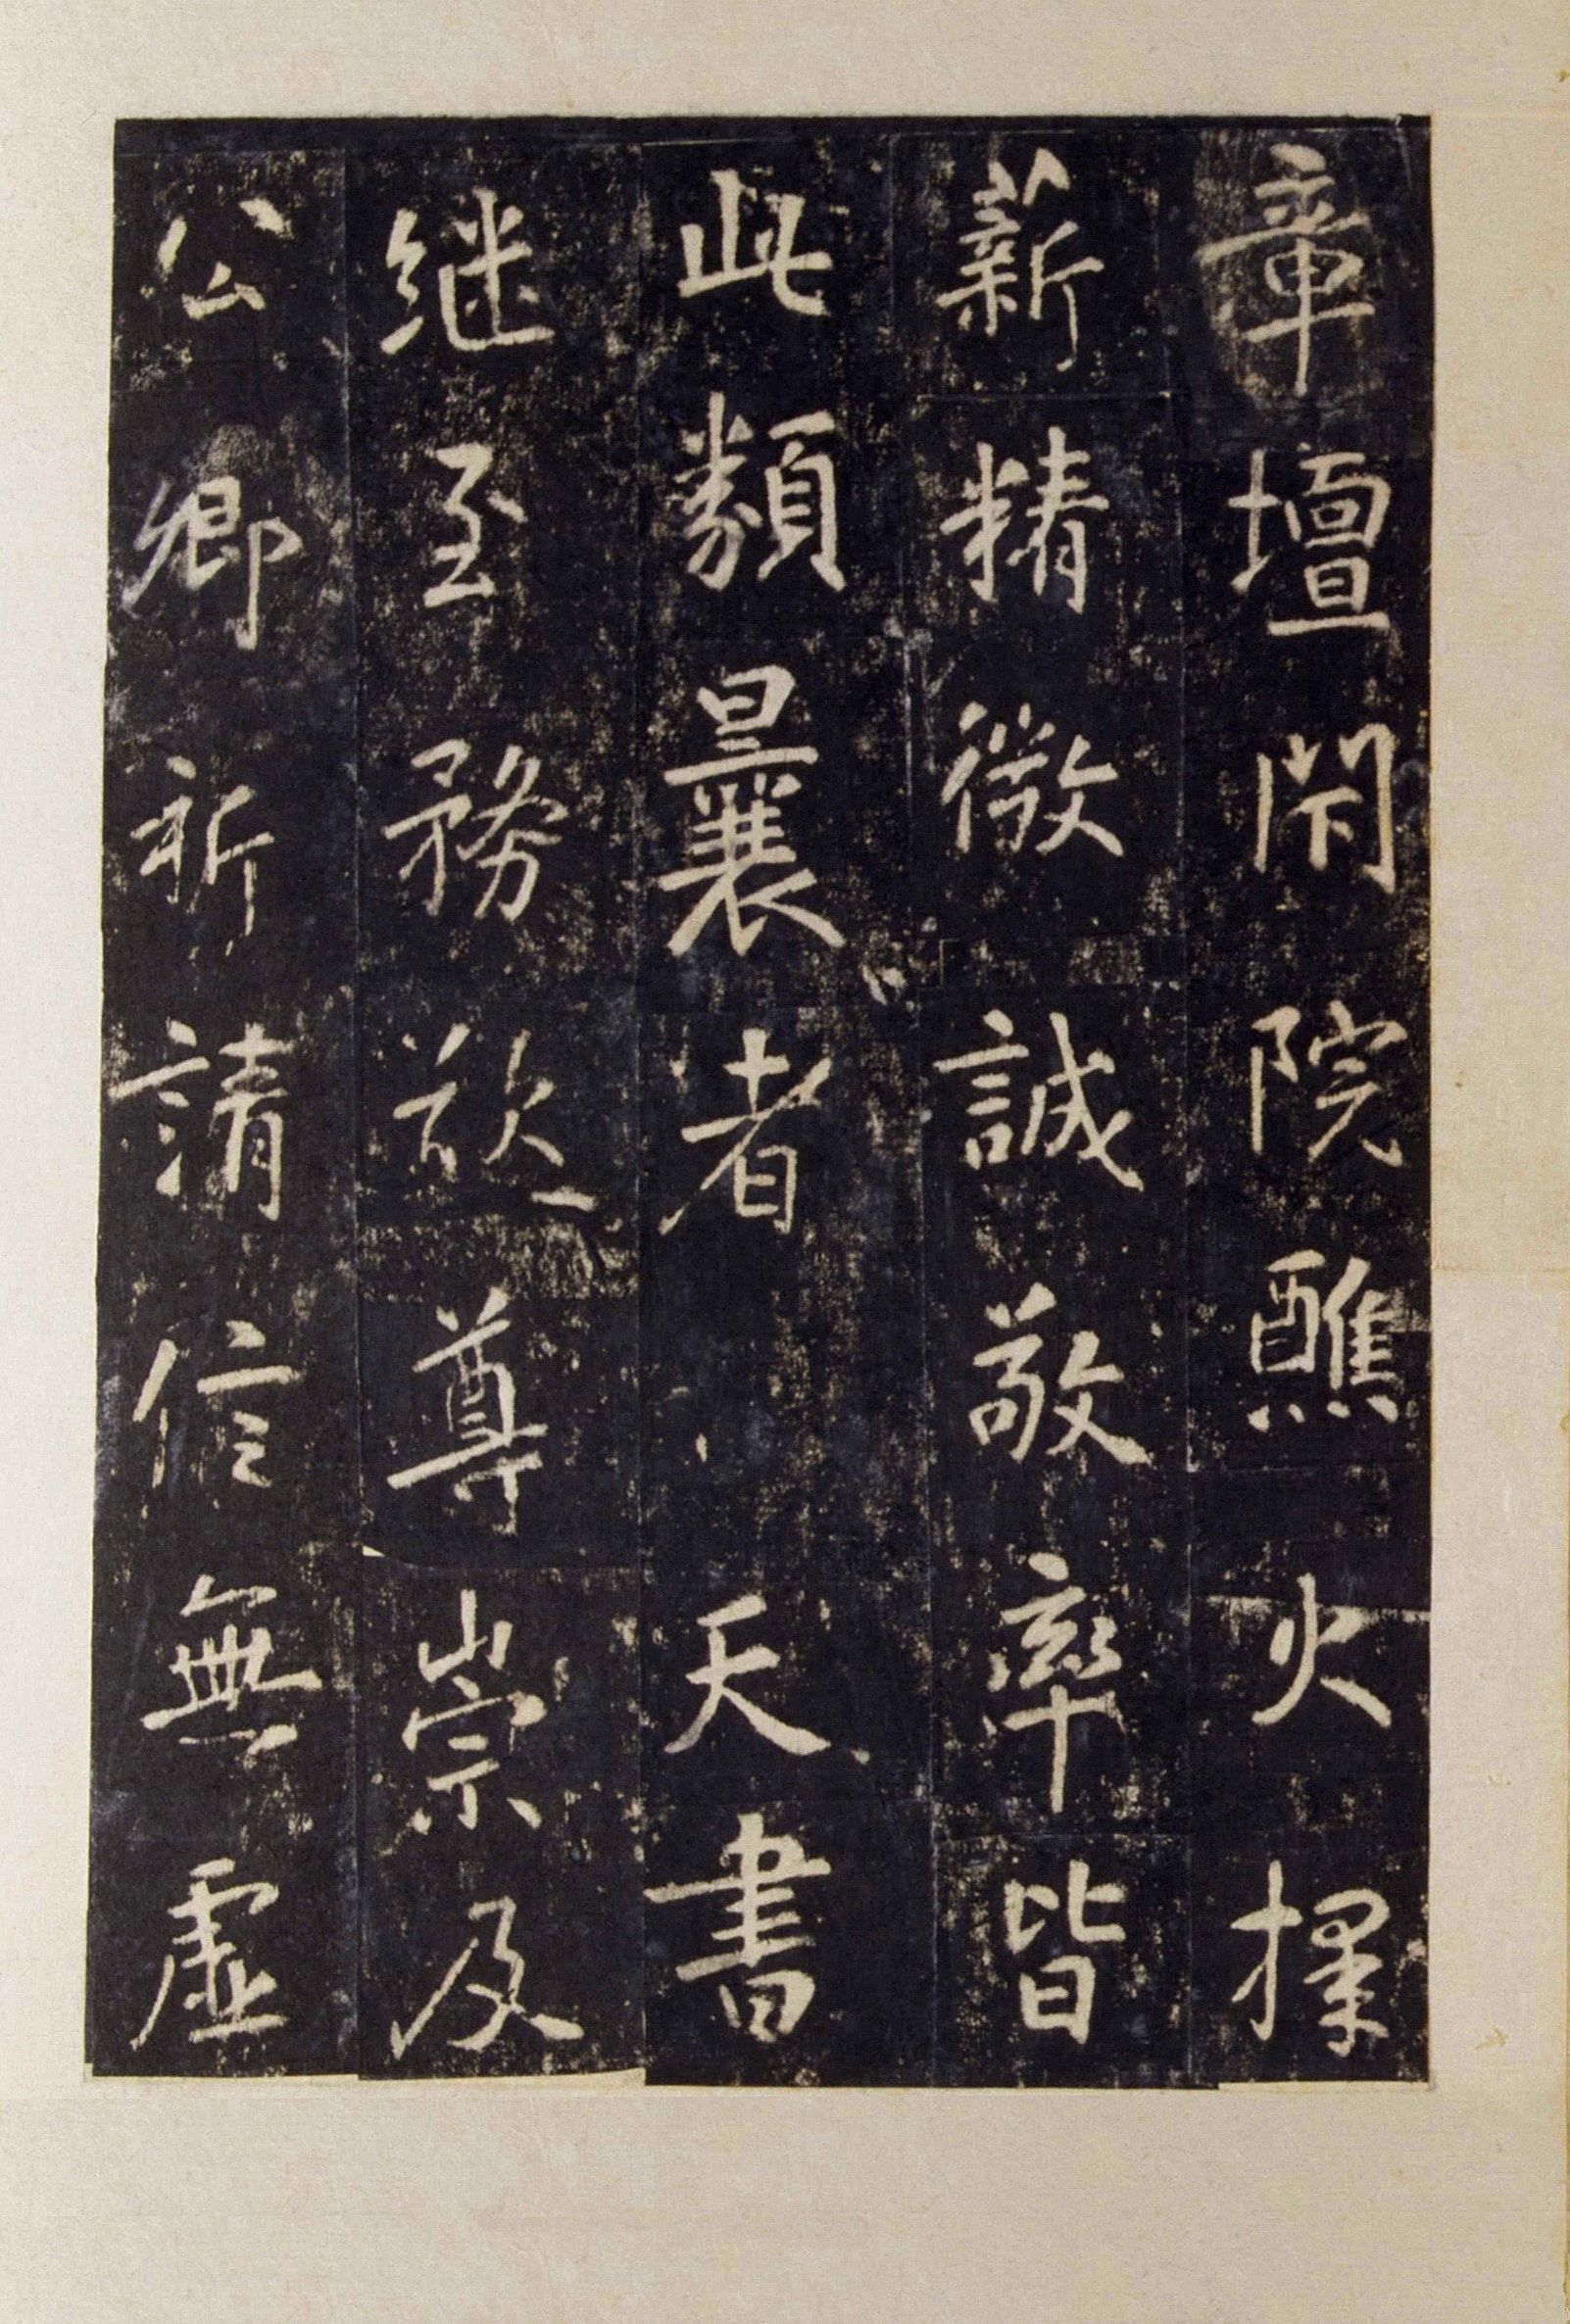 章壇閇院醮火擇
薪精徵誠敬率皆
此類曩者天書
継至務欲尊崇及
公卿祈請信無虛